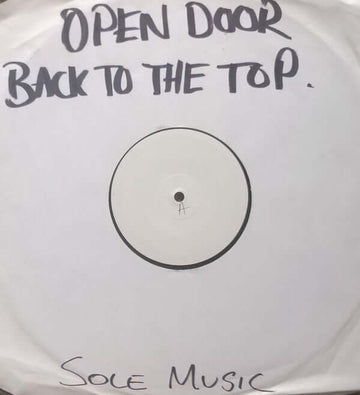 OPEN DOOR
BACK TO THE TOP.
A
SOLE MUSIC